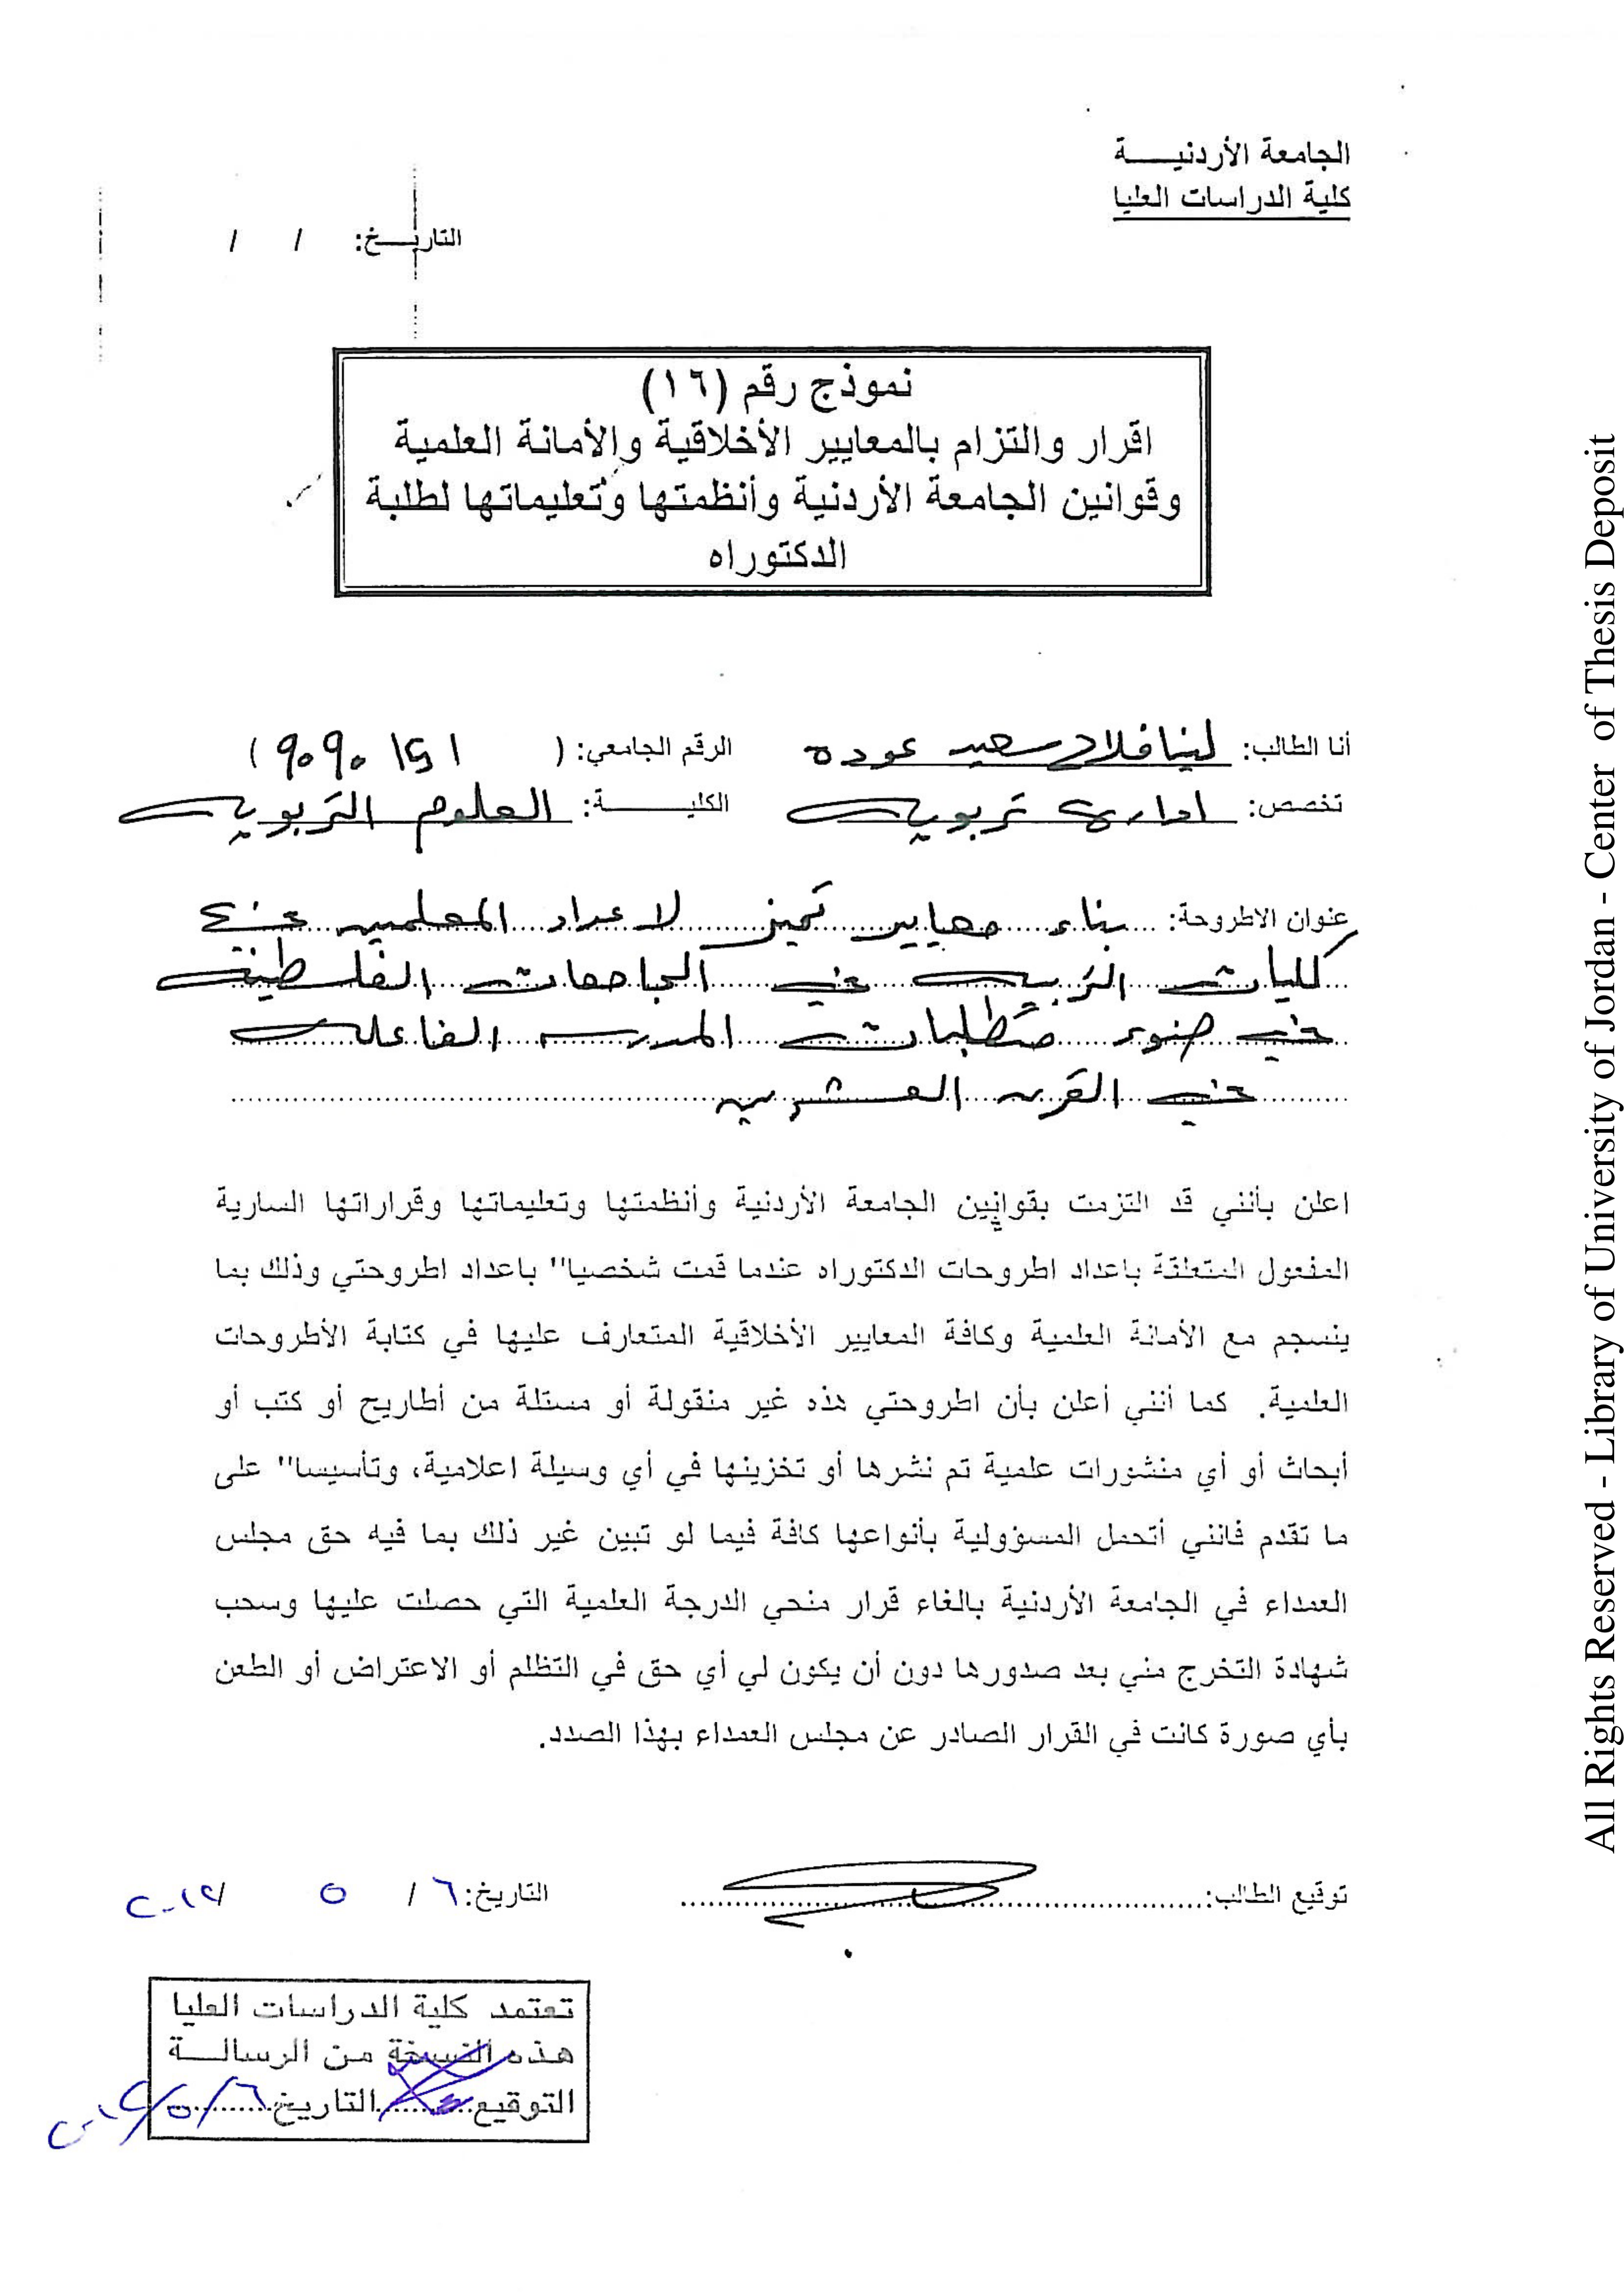 الجامعة الأردنيـــــة
كلية الدراسات العليا
التاريـــخ: / /
نموذج رقم (١٦)
اقرار والتزام بالمعايير الأخلاقية والأمانة العلمية
وقوانين الجامعة الأردنية وأنظمتها وتعليماتها لطلبة
الدكتوراه
أنا الطالب: لينا فلاح سعيد عوده الرقم الجامعي: ( )
تخصص: ادارة تربوية الكليـــــــة: العلوم التربوية
عنوان الاطروحة: بناء معايير تميز لاعداد المعلمين في
كليات التربية في الجامعات الفلسطينية
في ضوء متطلبات المدرسة الفاعلة
في القرن العشرين
اعلن بأنني قد التزمت بقوانين الجامعة الأردنية وأنظمتها وتعليماتها وقراراتها السارية
المفعول المتعلقة باعداد اطروحات الدكتوراه عندما قمت شخصيا" باعداد اطروحتي وذلك بما
ينسجم مع الأمانة العلمية وكافة المعايير الأخلاقية المتعارف عليها في كتابة الأطروحات
العلمية. كما أنني أعلن بأن اطروحتي هذه غير منقولة أو مستلة من أطاريح أو كتب أو
أبحاث أو أي منشورات علمية تم نشرها أو تخزينها في أي وسيلة اعلامية، وتأسيسا" على
ما تقدم فانني أتحمل المسؤولية بأنواعها كافة فيما لو تبين غير ذلك بما فيه حق مجلس
العمداء في الجامعة الأردنية بالغاء قرار منحي الدرجة العلمية التي حصلت عليها وسحب
شهادة التخرج مني بعد صدورها دون أن يكون لي أي حق في التظلم أو الاعتراض أو الطعن
بأي صورة كانت في القرار الصادر عن مجلس العمداء بهذا الصدد.
توقيع الطالب: التاريخ: ٦ / ٥ / ٢٠١٢
تعتمد كلية الدراسات العليا
هذه النسخة من الرسالـــة
التوقيع التاريخ ٦/٥/٢٠١٢
All Rights Reserved - Library of University of Jordan - Center of Thesis Deposit